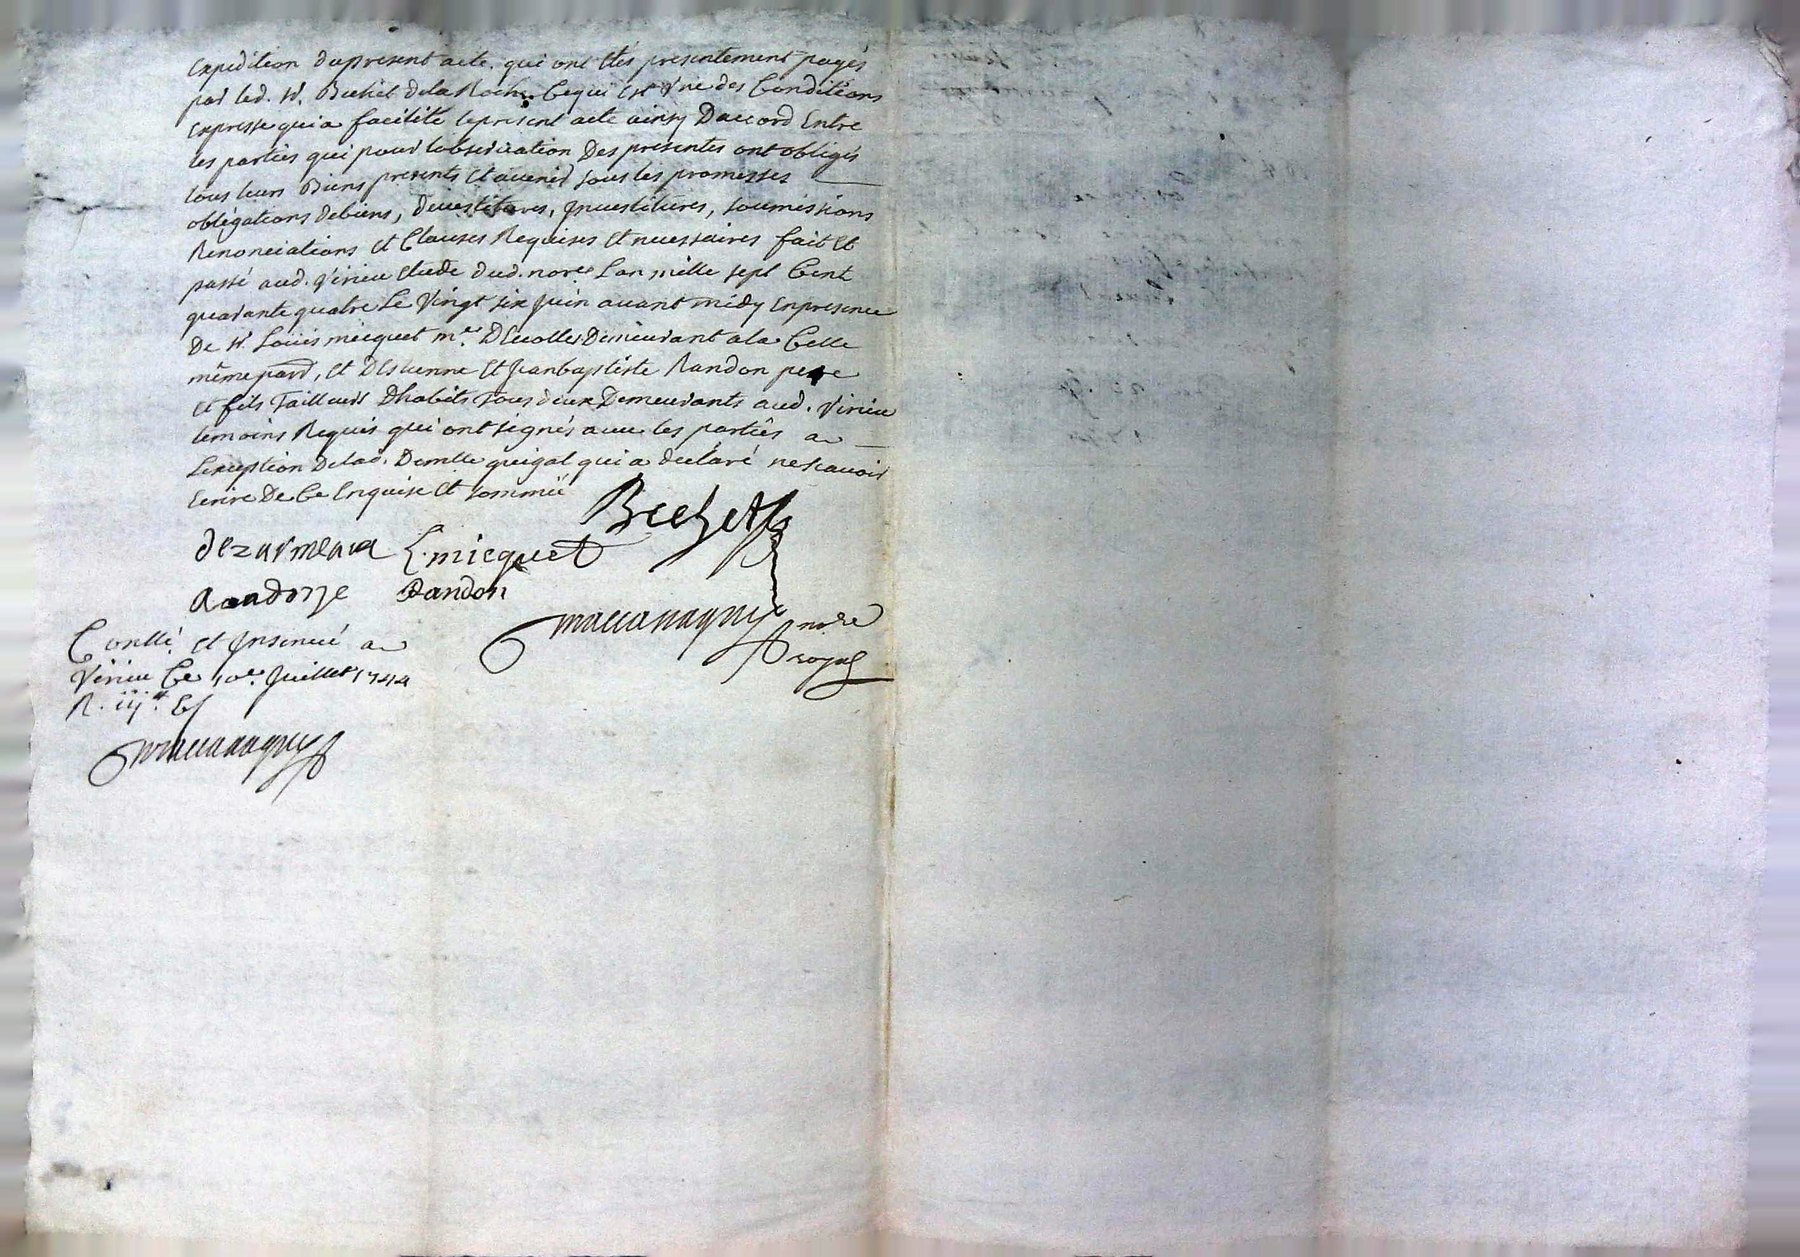 Expedition du present acte. qui ont étés presentement payés
par led. Sr. Bechet dela Roche Ce qui Est Une des Conditions
Expresse qui a facilité le present acte ainsy Daccord Entre
les parties qui pour lobservation Des presentes ont obligés
tous leurs Biens presents Et avenir sous les promesses
obligations debiens, devestitures, Jnvestitures, soumissions
Renonciations Et Clauses Requises Et necessaires fait Et
passé aud. Virieu Etude dud. nore Lan mille sept Cent
quarante quatre Le Vingt six Juin avant midy En presence
De Sr. Loüis micquet me. DEcolle Demeurant a la Celle
même pard, Et DEstienne Et Jean baptiste Randon pere
Et fils Tailleurs Dhabits tous deux Demeurants aud. Virieu
temoins Requis qui ont signés avec les parties a
Lexception Delad. Demlle guigal qui a declaré ne scavoir
Ecrire De Ce Enquise Et sommée
Bechet
dezarmeaux L. micquet
Randon
maccanagny nore
royal
Conllé. Et Jnsinué a
Virieu Ce 10e. Juillet 1744
R.
maccanagny